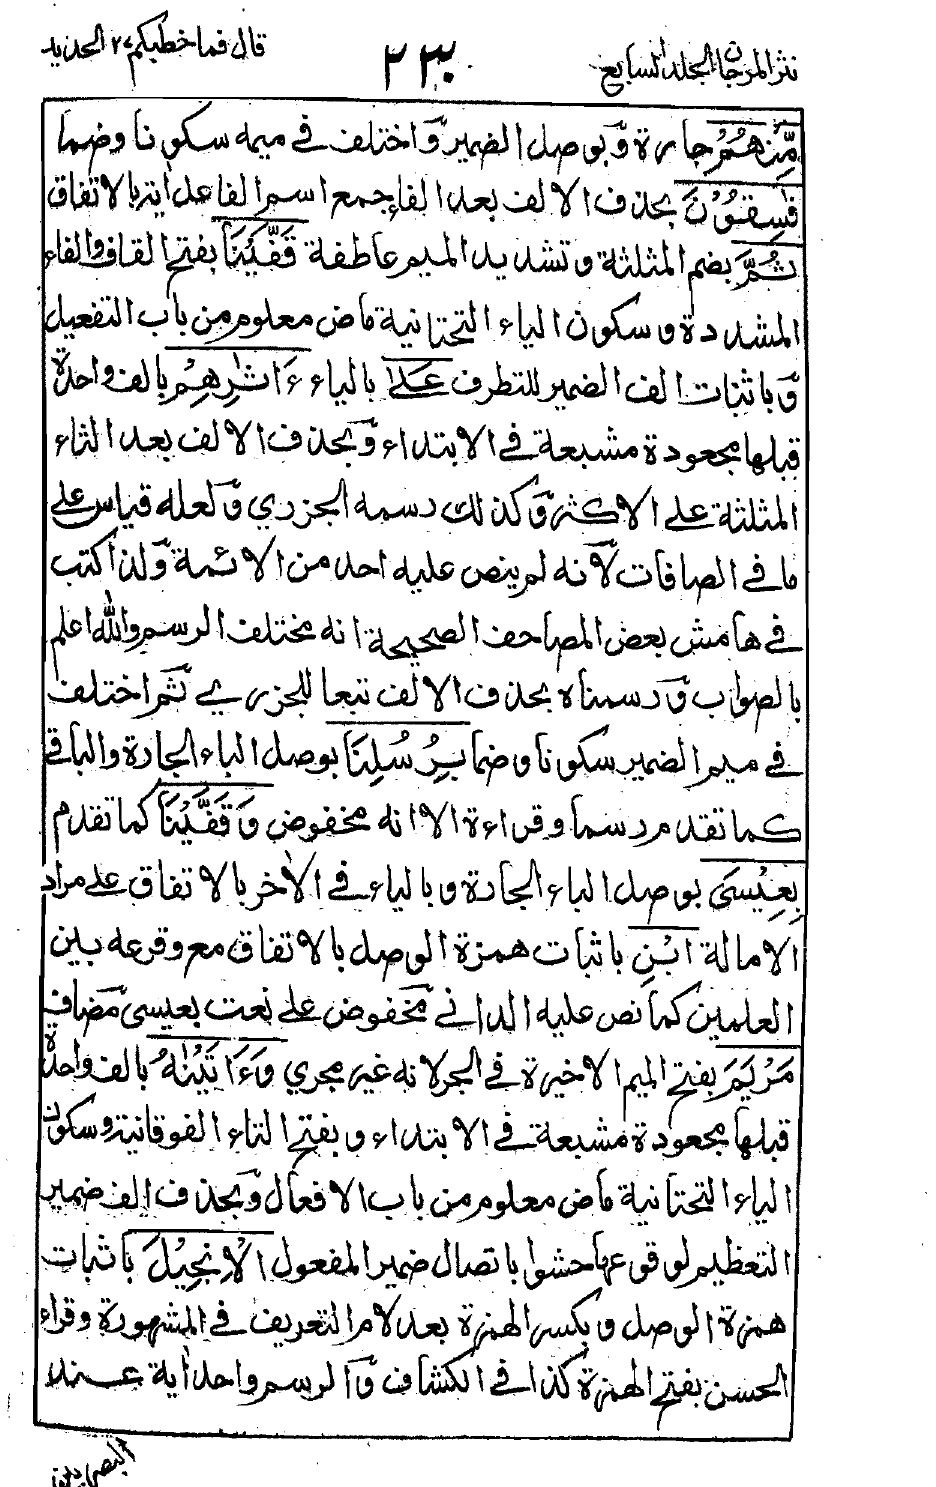 نثر المرجان المجلد السابع
٢٣٠
قال فما خطبكم ٢٧ الحديد
مِّنْهُمُ جارة وبوصل الضمير واختلف في ميمه سكونا وضما
فٰسِقُوْنَ بحذف الالف بعد الفاء جمع اسم الفاعل اية بالاتفاق
ثُمَّ بضم المثلثة وتشديد الميم عاطفة قَفَّيْنَا بفتح القاف والفاء
المشددة وسكون الياء التحتانية ماض معلوم من باب التفعيل
وباثبات الف الضمير للتطرف عَلٰۤى بالياء ءَاثٰرِهِمْ بالف واحدة
قبلها مجعودة مشبعة في الابتداء وبحذف الالف بعد الثاء
المثلثة على الاكثر وكذلك رسمه الجزري ولعله قياس على
ما في الصافات لانه لم ينص عليه احد من الائمة ولذا كتب
في هامش بعض المصاحف الصحيحة انه مختلف الرسم والله اعلم
بالصواب ورسمناه بحذف الالف تبعا للجزري ثم اختلف
في ميم الضمير سكونا وضما بِرُسُلِنَا بوصل الباء الجارة والباقي
كما تقدم رسما وقراءة الا انه مخفوض وَقَفَّيْنَا كما تقدم
بِعِيْسَى بوصل الباء الجارة وبالياء في الاخر بالاتفاق على مراد
الامالة ابْنِ باثبات همزة الوصل بالاتفاق مع وقوعه بين
العلمين كما نص عليه الداني مخفوض على نعت بعيسى مضاف
مَرْيَمَ بفتح الميم الاخيرة في الجر لانه غير مجري وَءَاتَيْنٰهُ بالف واحدة
قبلها مجعودة مشبعة في الابتداء وبفتح التاء الفوقانية وسكون
الياء التحتانية ماض معلوم من باب الافعال وبحذف الف ضمير
التعظيم لوقوعها حشوا باتصال ضمير المفعول الْاِنْجِيْلَ باثبات
همزة الوصل وبكسر الهمزة بعد لام التعريف في المشهورة وقراء
الحسن بفتح الهمزة كذا في الكشاف والرسم واحد اية عند